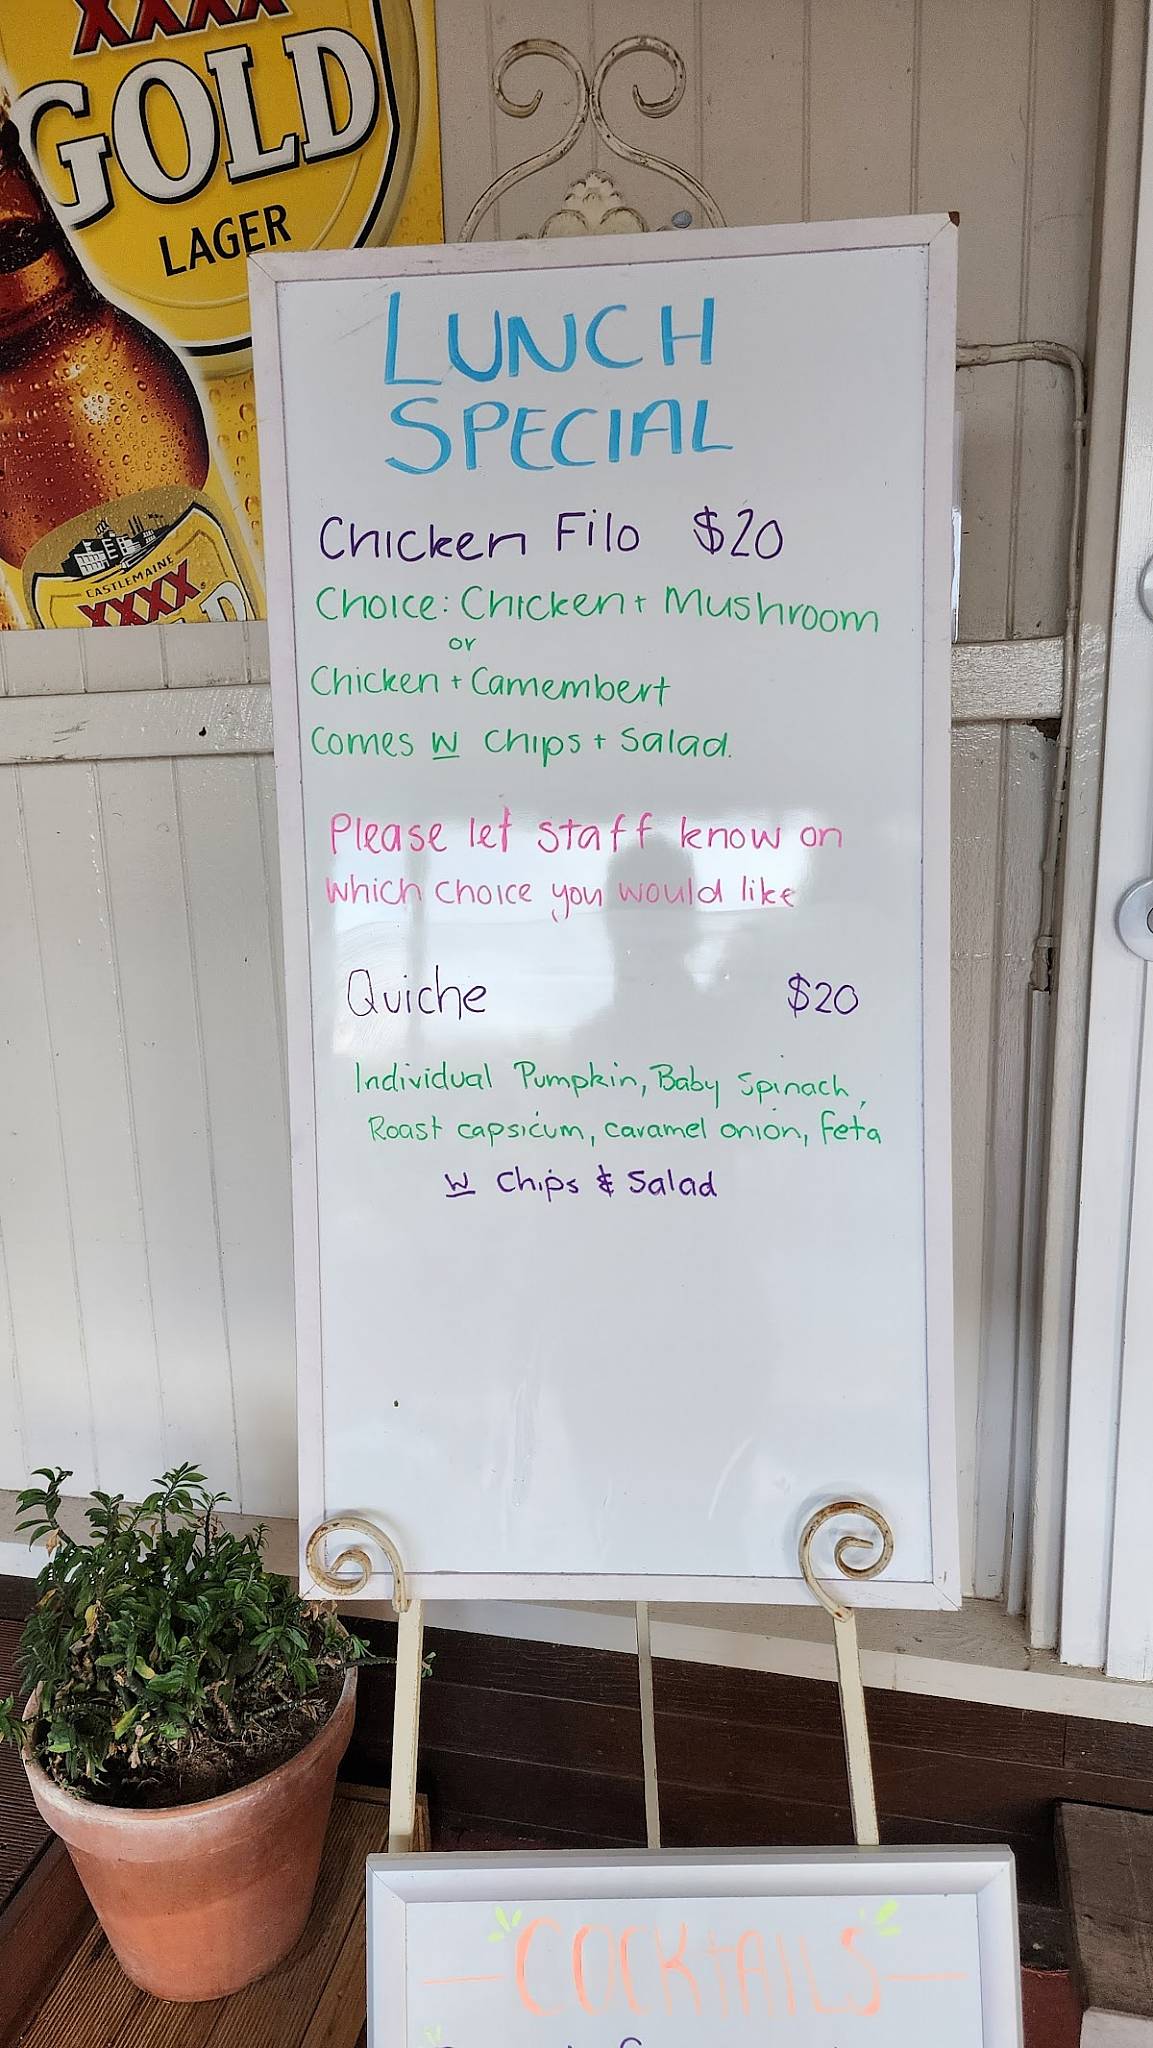 XXXX
GOLD
LAGER
CASTLEMAINE
XXXX
LUNCH
SPECIAL
Chicken Filo $20
Choice: Chicken + Mushroom
or
Chicken + Camembert
Comes W Chips + Salad.
Please let staff know on
which choice you would like
Quiche $20
Individual Pumpkin, Baby Spinach,
Roast capsicum, caramel onion, feta
W Chips & Salad
COCKTAILS